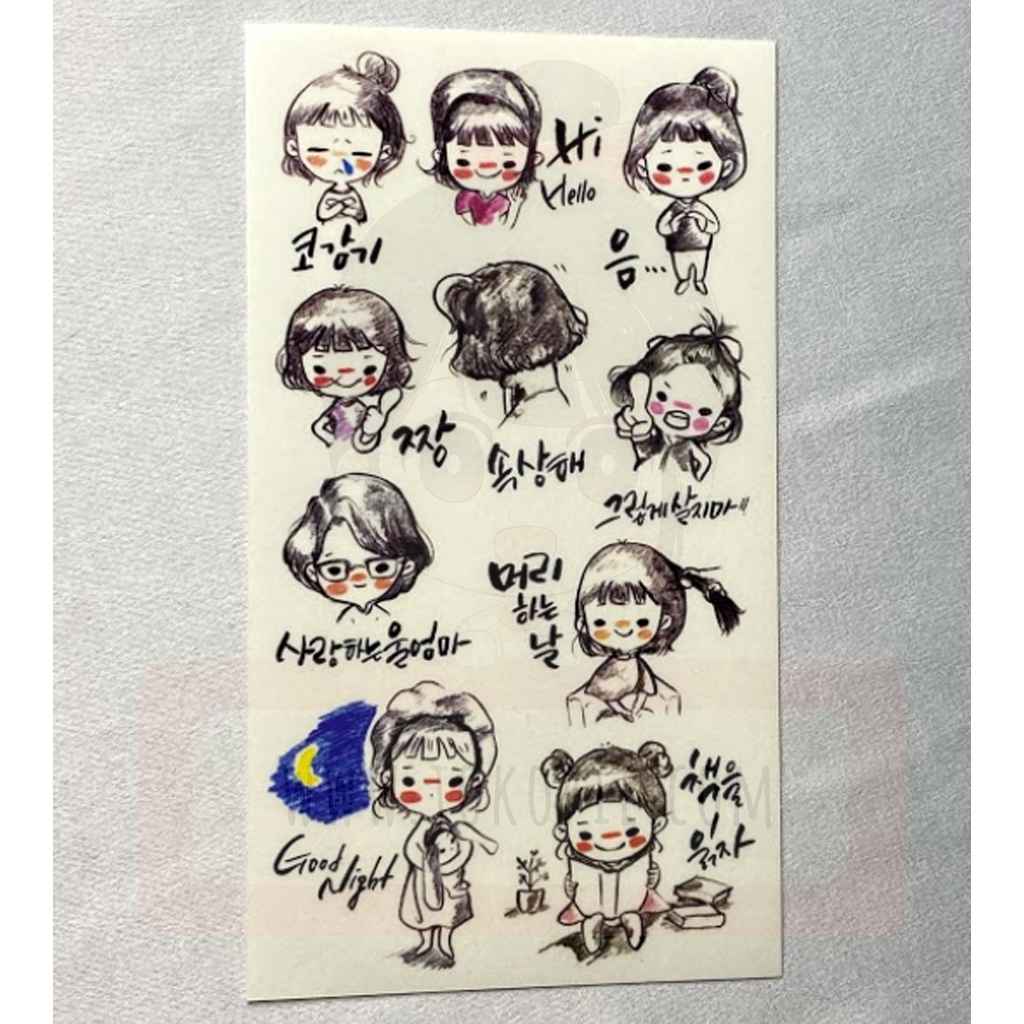 코감기
Hi
Hello
음...
짱
속상해
그렇게살지마"
사랑하는울엄마
머리
하는
날
Good
Night
책을
읽자